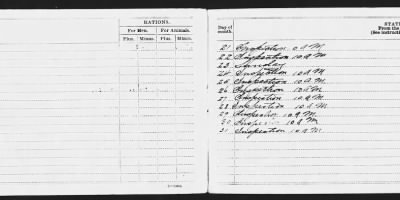 RATIONS.
For Men. For Animals.
Plus. Minus. Plus. Minus.
Day of month.
STAT
From the
(See instructi
21 Inspection 10 A M
22 Inspection 10 A M
23 Sunday
24 Inspection 10 A M
25 Inspection 10 A M
26 Inspection 10 A M
27 Inspection 10 A M
28 Inspection 10 A M
29 Inspection 10 A M
30 Inspection 10 A M
31 Inspection 10 A M